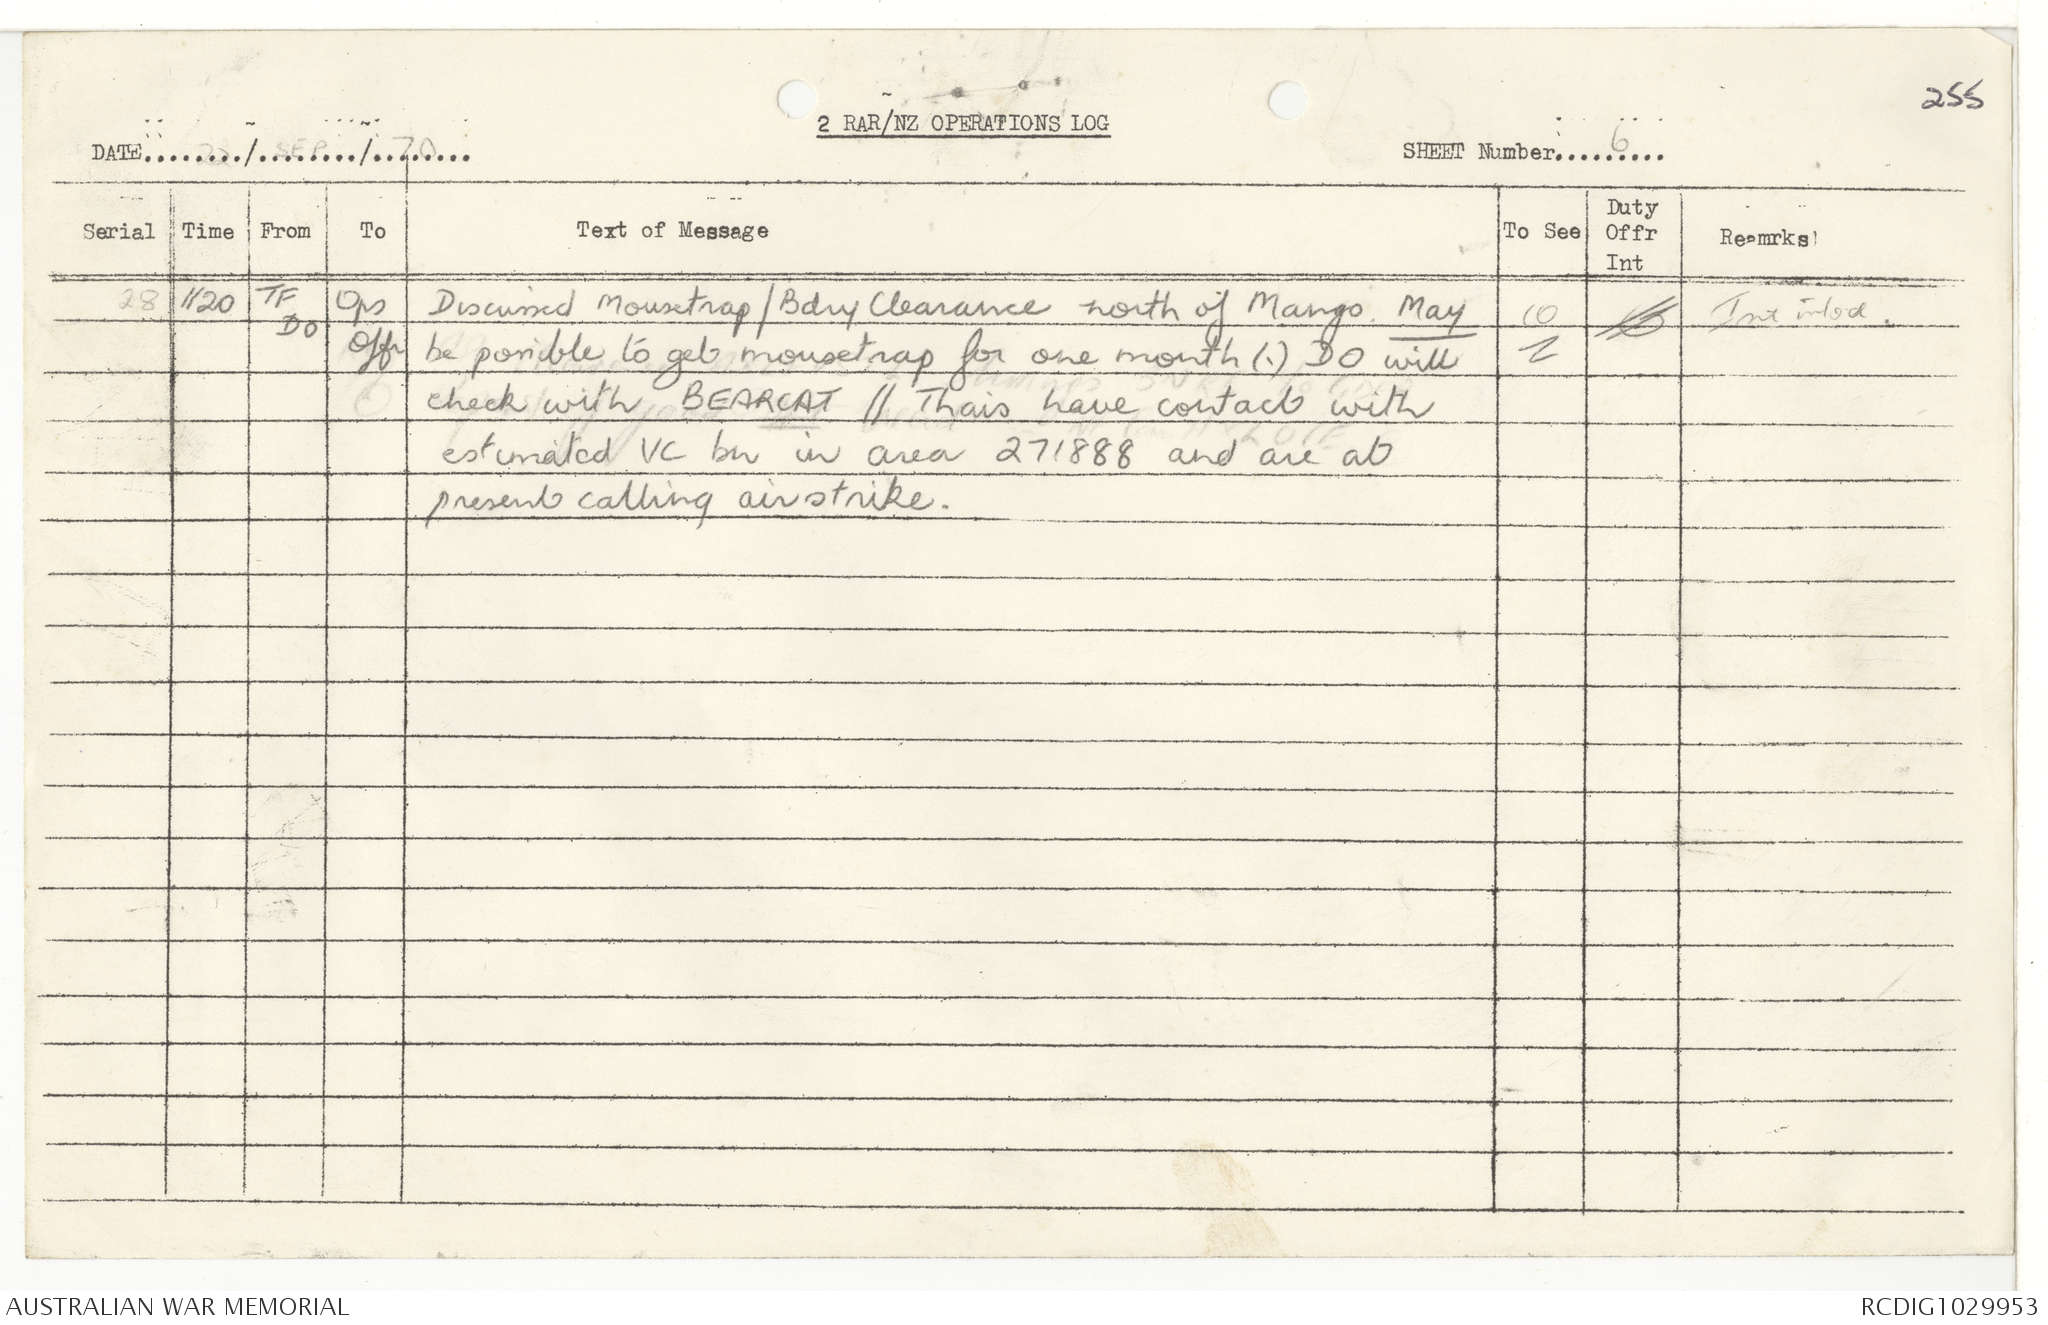 255
2 RAR/NZ OPERATIONS LOG
DATE......../ SEP /.70...
SHEET Number....6.....
Serial Time From To Text of Message To See Duty Offr Int Reamrks
28 1120 TF DO Ops Offr Discussed Mousetrap/Bdry Clearance north of Mango. May
be possible to get mousetrap for one month (.) DO will
check with BEARCAT // Thais have contact with
estimated VC bn in area 271888 and are at
present calling airstrike.
Int
AUSTRALIAN WAR MEMORIAL
RCDIG1029953